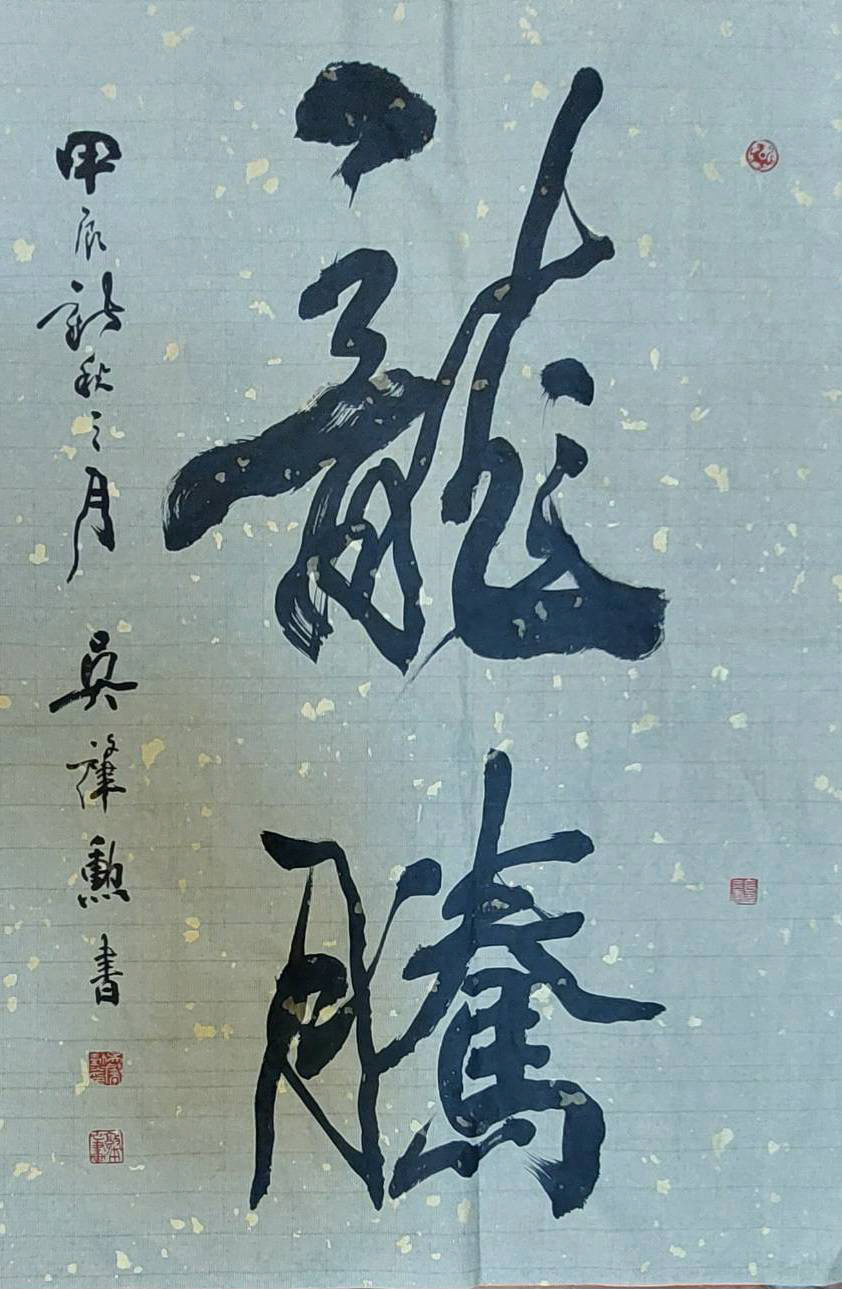 龍騰
甲辰新秋之月 吳 勳書